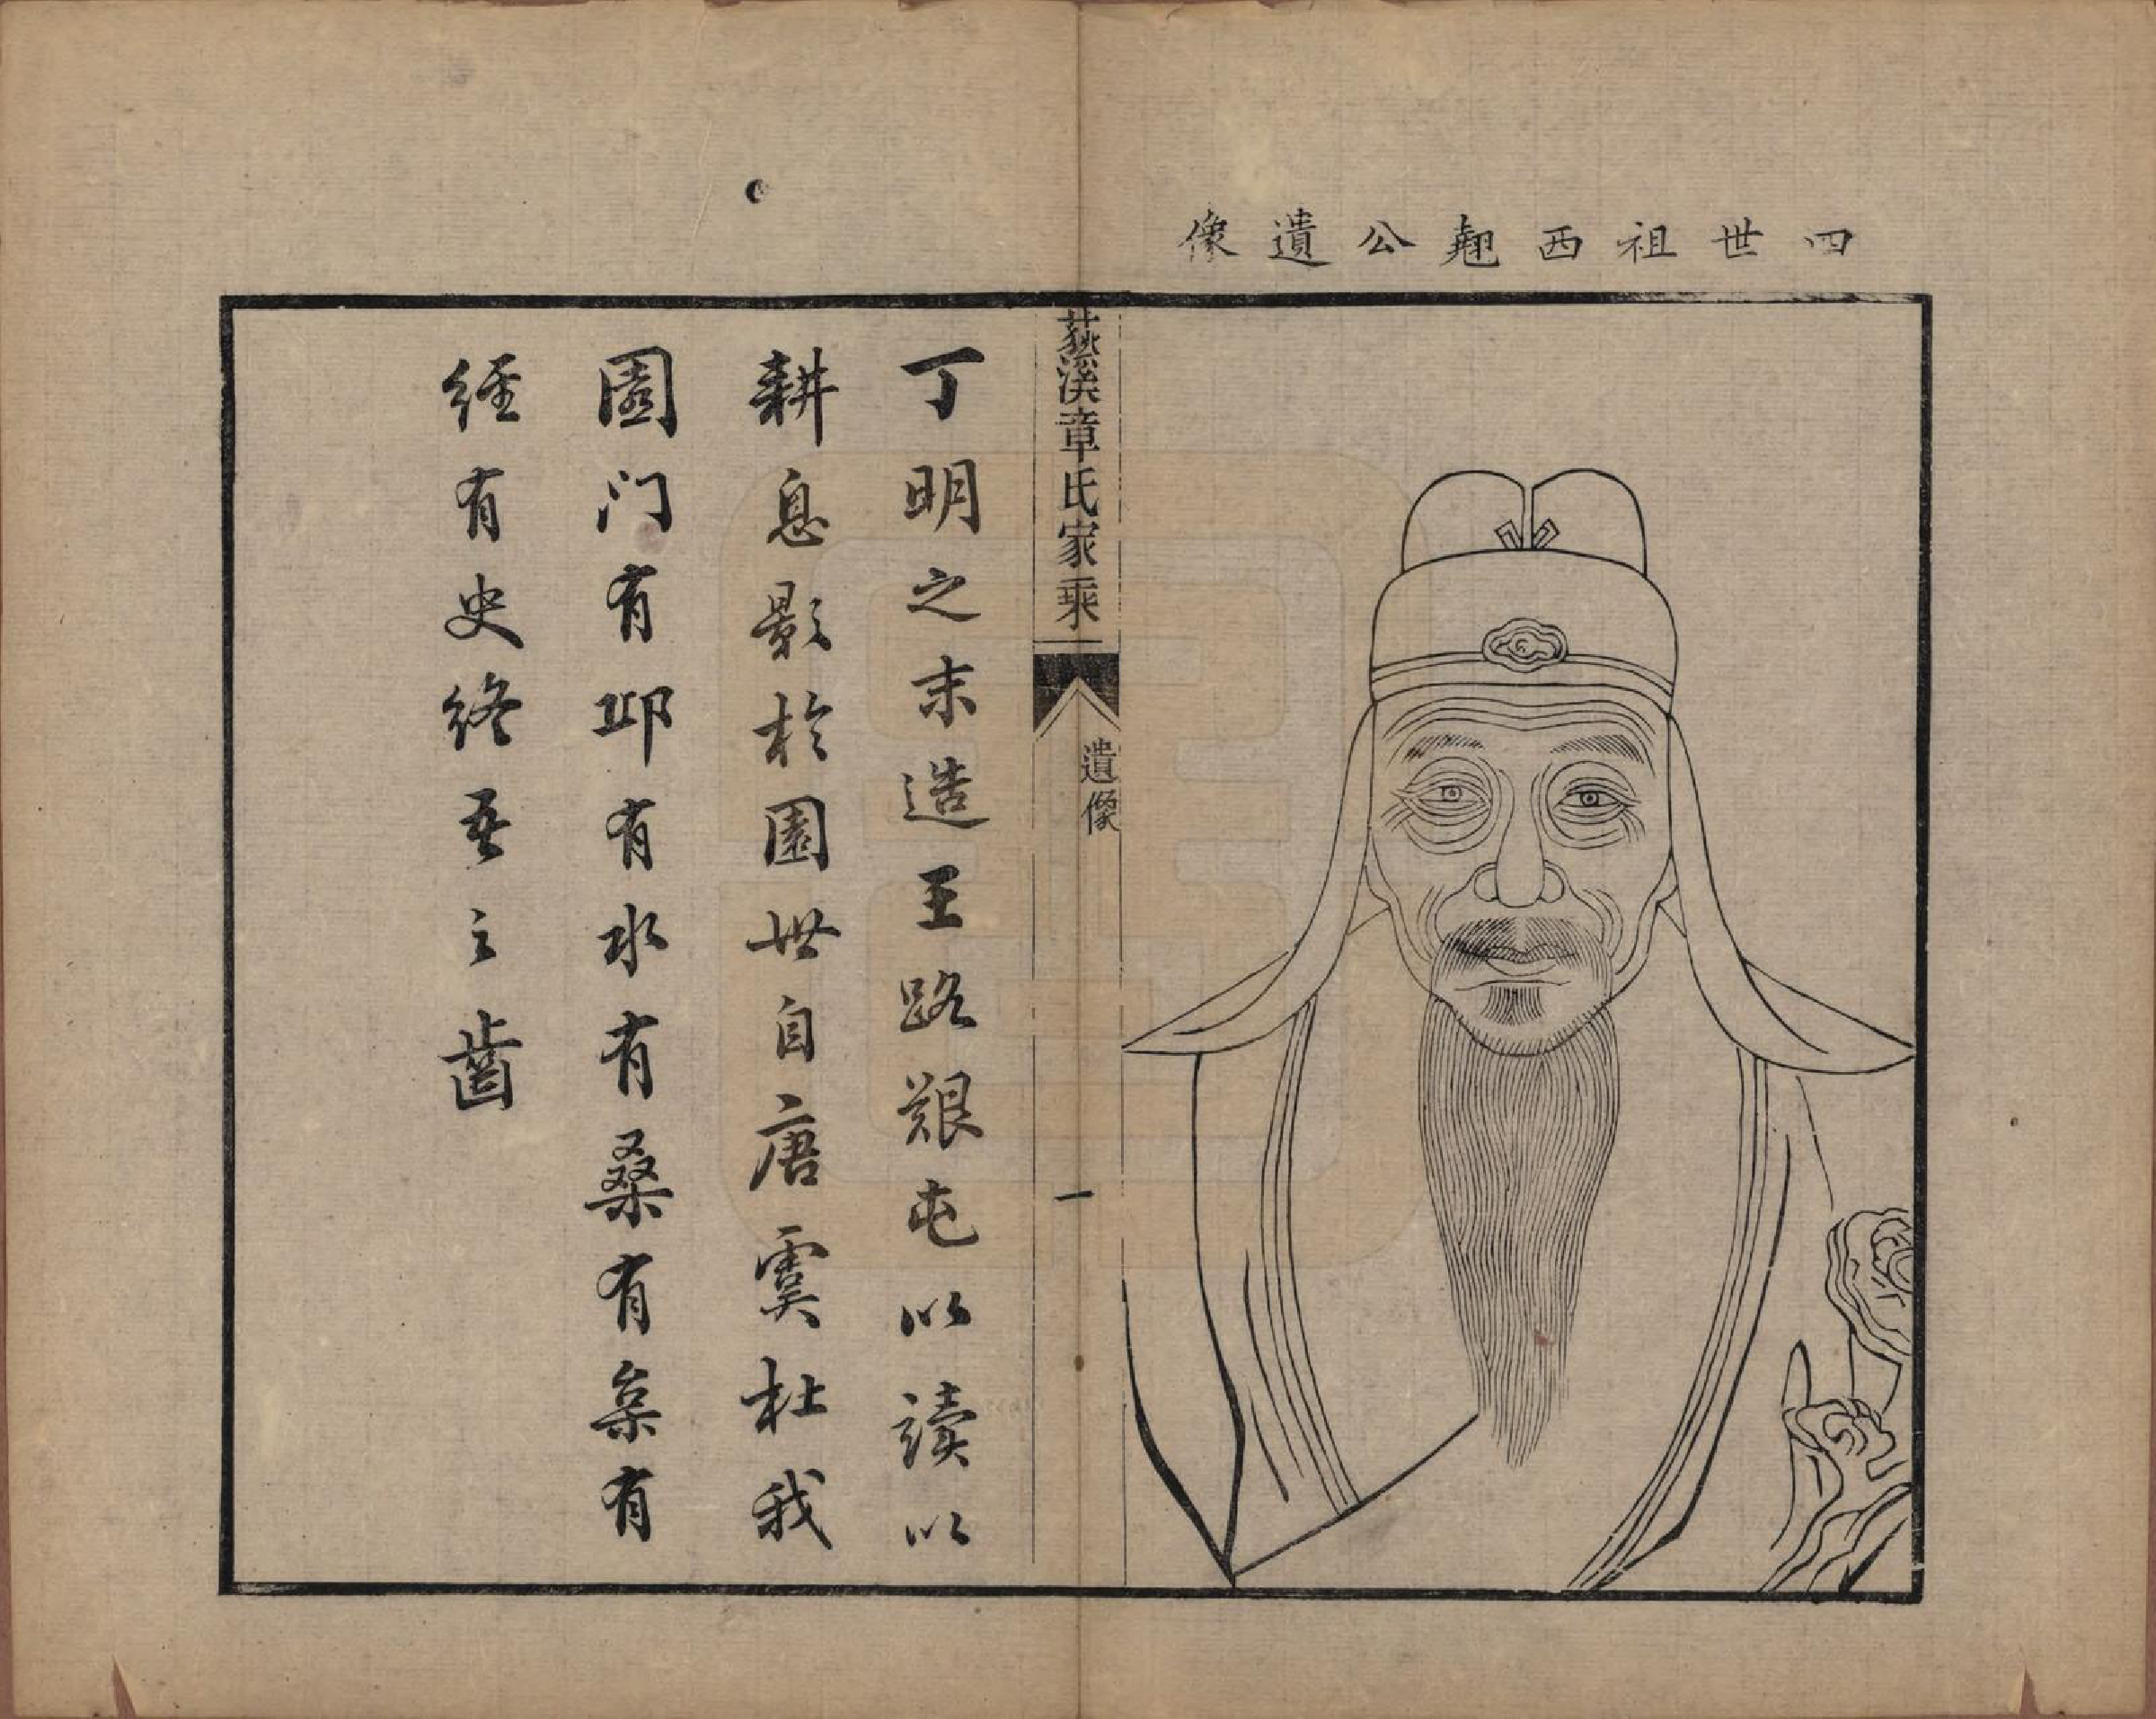 四世祖西翹公遺像
荻溪章氏家乘
遺像
一
丁明之末造王路艱屯以讀以
耕息影於園世自唐虞杜我
園门有邱有水有桑有枲有
經有史終吾之齒